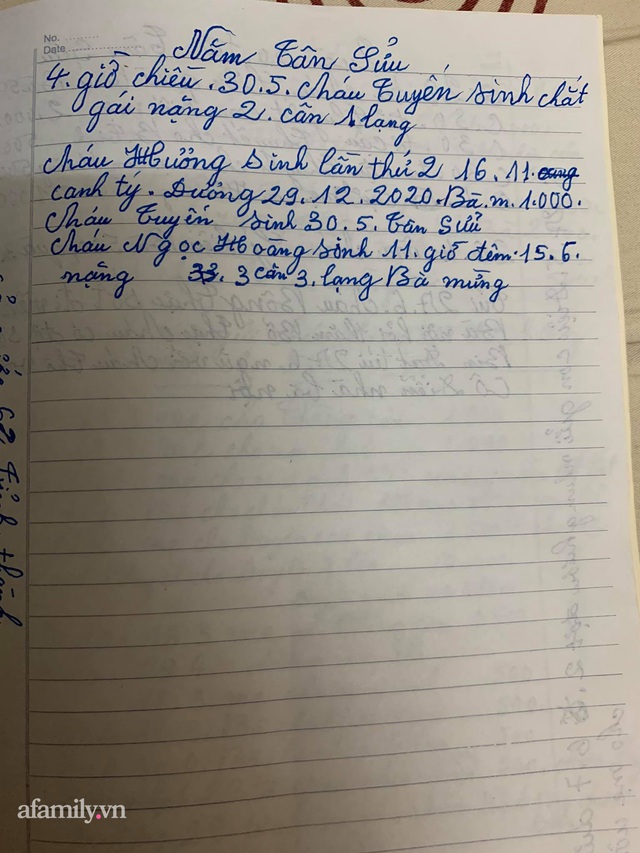 No.
Date
Năm Tân Sửu
4. giờ chiều. 30.5. cháu Tuyến sinh chắt
gái nặng 2. cân 1 lạng
cháu Hương sinh lần thứ 2 16.11.
canh tý. Dương 29.12.2020. Bà. m. 1.000.
cháu Tuyến sinh 30.5. Tân Sửu
cháu Ngọc Hoàng sinh 11. giờ đêm. 15.6.
nặng 33. 3 cân 3. lạng Bà mừng
afamily.vn